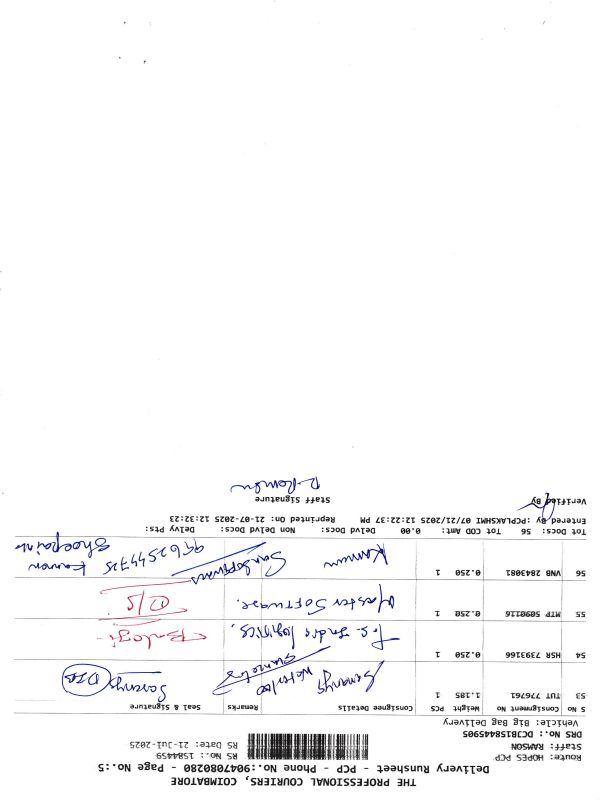 THE PROFESSIONAL COURIERS, COIMBATORE
Delivery Runsheet - PCP - Phone No.:9047080280 - Page No.:5
Route: HOPES PCP RS No.: 1584459
Staff: RAMSON RS Date: 21-Jul-2025
DRS No.: DCTB1584445905
Vehicle: Big Bag Delivery
S No Consignment No Weight PCS Consignee Details Remarks Seal & Signature
53 TUT 776761 1.185 1 Saranya
54 HSR 7393166 0.250 1 Logistics, Balaji
55 MTP 5090116 0.250 1 Master Software.
56 VNB 2843081 0.250 1 Kannan 9962544725
Tot Docs: 56 Tot COD Amt: 0.00 Delvd Docs: Non Delvd Docs: Delvy Pts:
Entered By :PCPLAKSHMI 07/21/2025 12:22:37 PM Reprinted On: 21-07-2025 12:32:23
Verified By Staff Signature